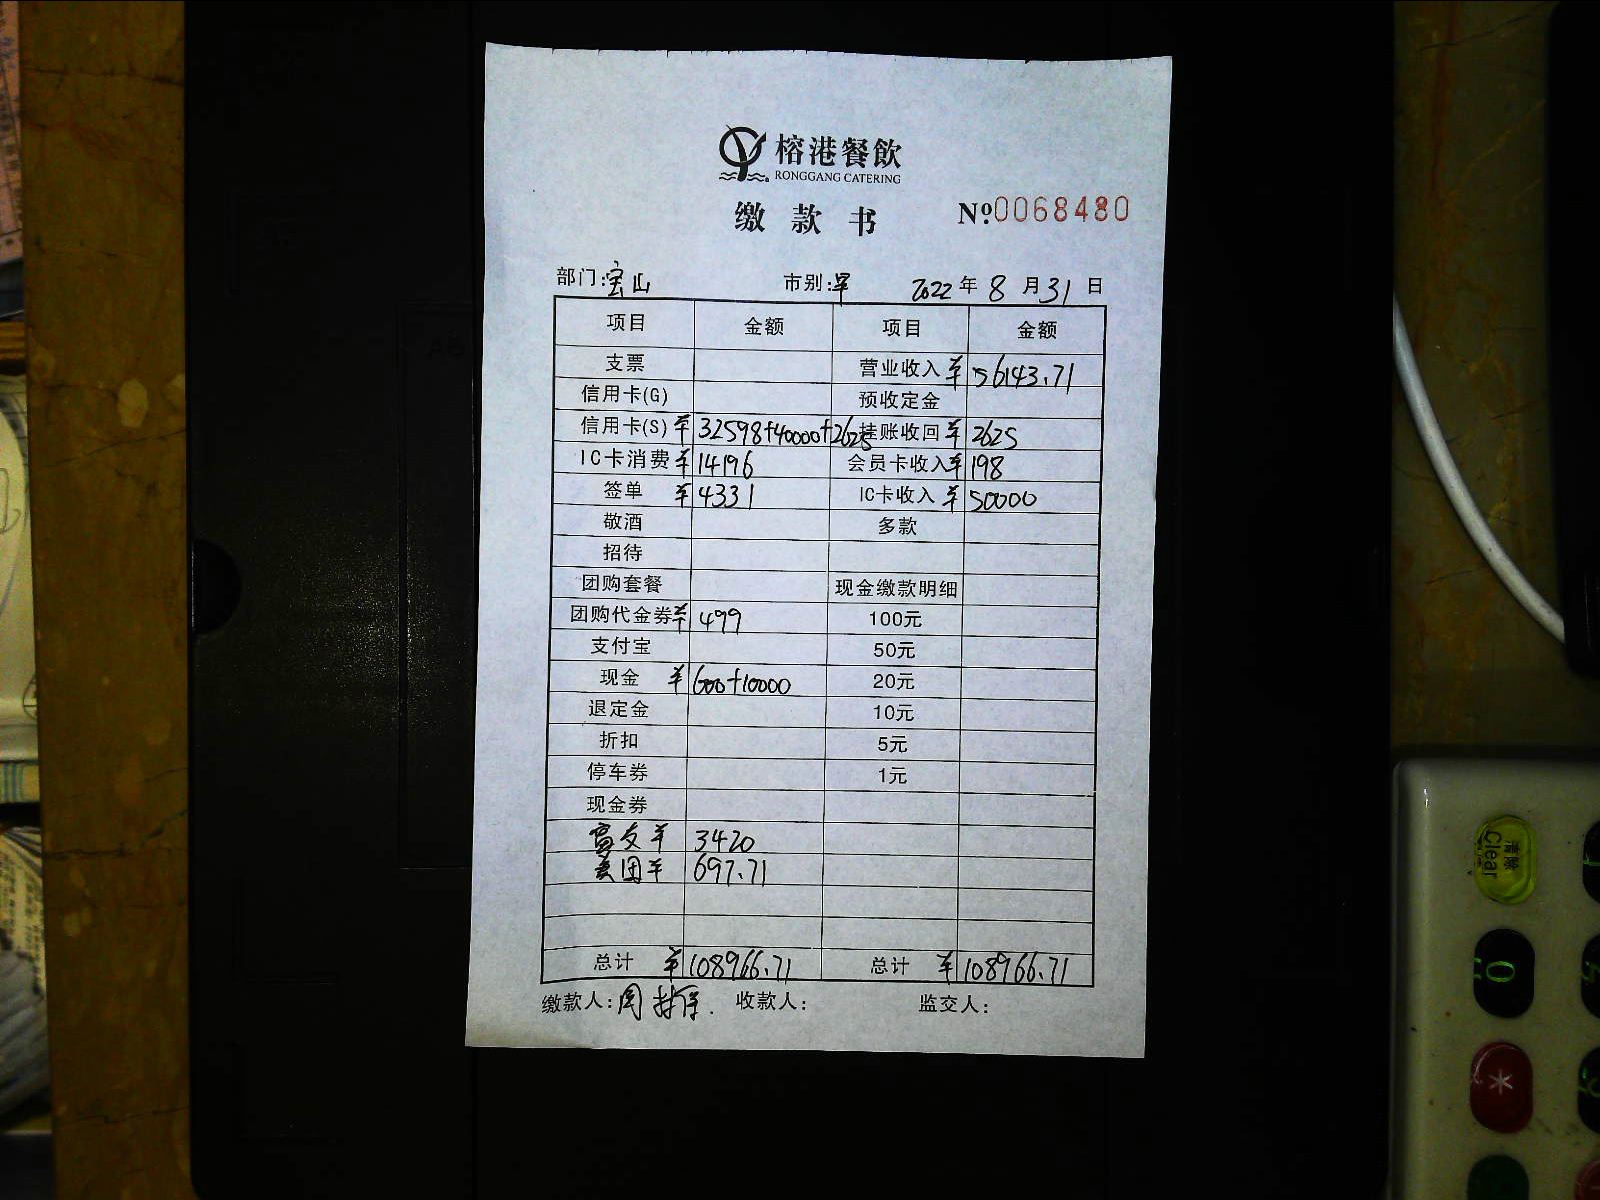 榕港餐飲
RONGGANG CATERING
缴款书 №0068480
部门:宝山 市别:早 2022年8月31日
项目 金额 项目 金额
支票 营业收入 ¥56143.71
信用卡(G) 预收定金
信用卡(S) ¥32598+40000+2625 挂账收回 ¥2625
IC卡消费 ¥14196 会员卡收入 ¥198
签单 ¥4331 IC卡收入 ¥50000
敬酒 多款
招待
团购套餐 现金缴款明细
团购代金券 ¥499 100元
支付宝 50元
现金 ¥600+10000 20元
退定金 10元
折扣 5元
停车券 1元
现金券
富友 ¥3420
美团 ¥697.71
总计 ¥108966.71 总计 ¥108966.71
缴款人:周 收款人: 监交人:
清除
Clear
0
*